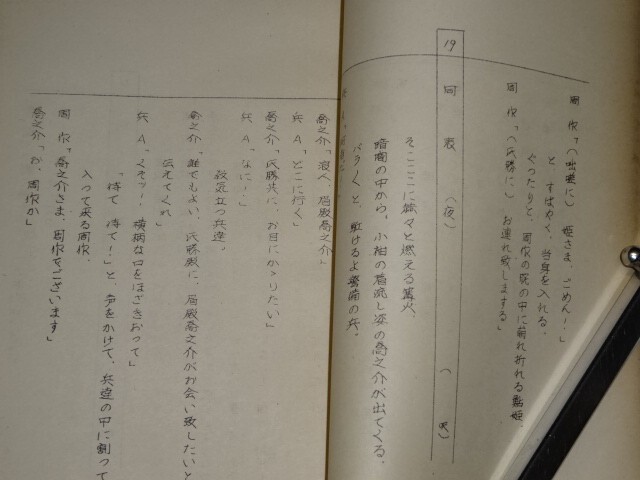 周作「（咄嗟に）姫さま、ごめん！」
と、すばやく、当身を入れる。
ぐったりと、周作の腕の中に前れ折れる鮎姫。
周作「（氏勝に）お連れ致しまする」
19 同 表 （夜） （ 天）
そこここに赫々と燃える篝火。
暗闇の中から、小袖の着流し姿の喬之介が出てくる。
バラバラと、駈けるよ警備の兵。
喬之介「退へ、
兵 A「どこに行く」
喬之介「氏勝共に、お目にかゝりたい」
兵 A「なに！」
殺気立つ兵達。
喬之介「誰でもよい、氏勝殿に、喬之介がお会い致したいと
伝えてくれ」
兵 A「くそッ！横柄な口をほざきおって」
「待て 待て！」と、声をかけて、兵達の中に割って
入って来る周作。
周作「喬之介さま、周作でございます」
喬之介「お、周作か」